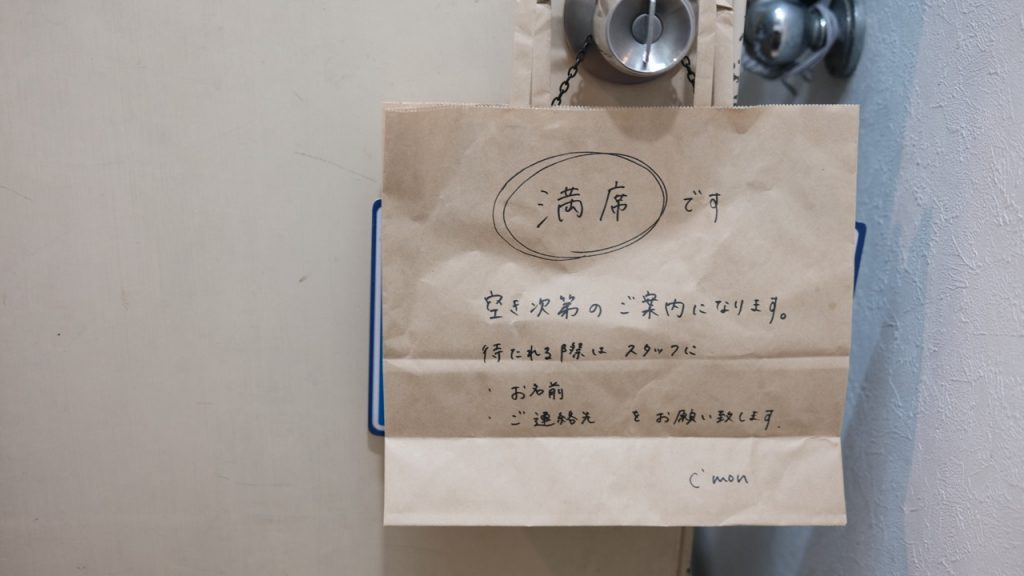 満席です
空き次第のご案内になります。
待たれる際は スタッフに
・お名前
・ご連絡先 をお願い致します.
C'mon